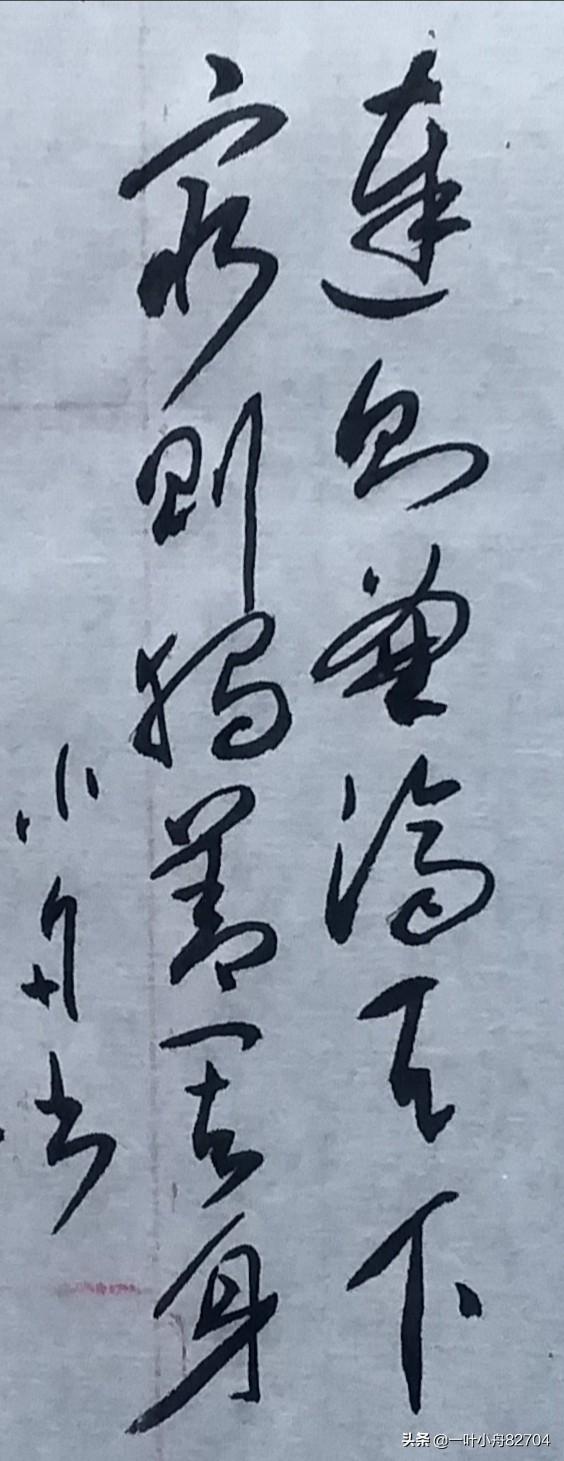 達則兼濟天下
窮則獨善其身
小舟书
头条 @一叶小舟82704